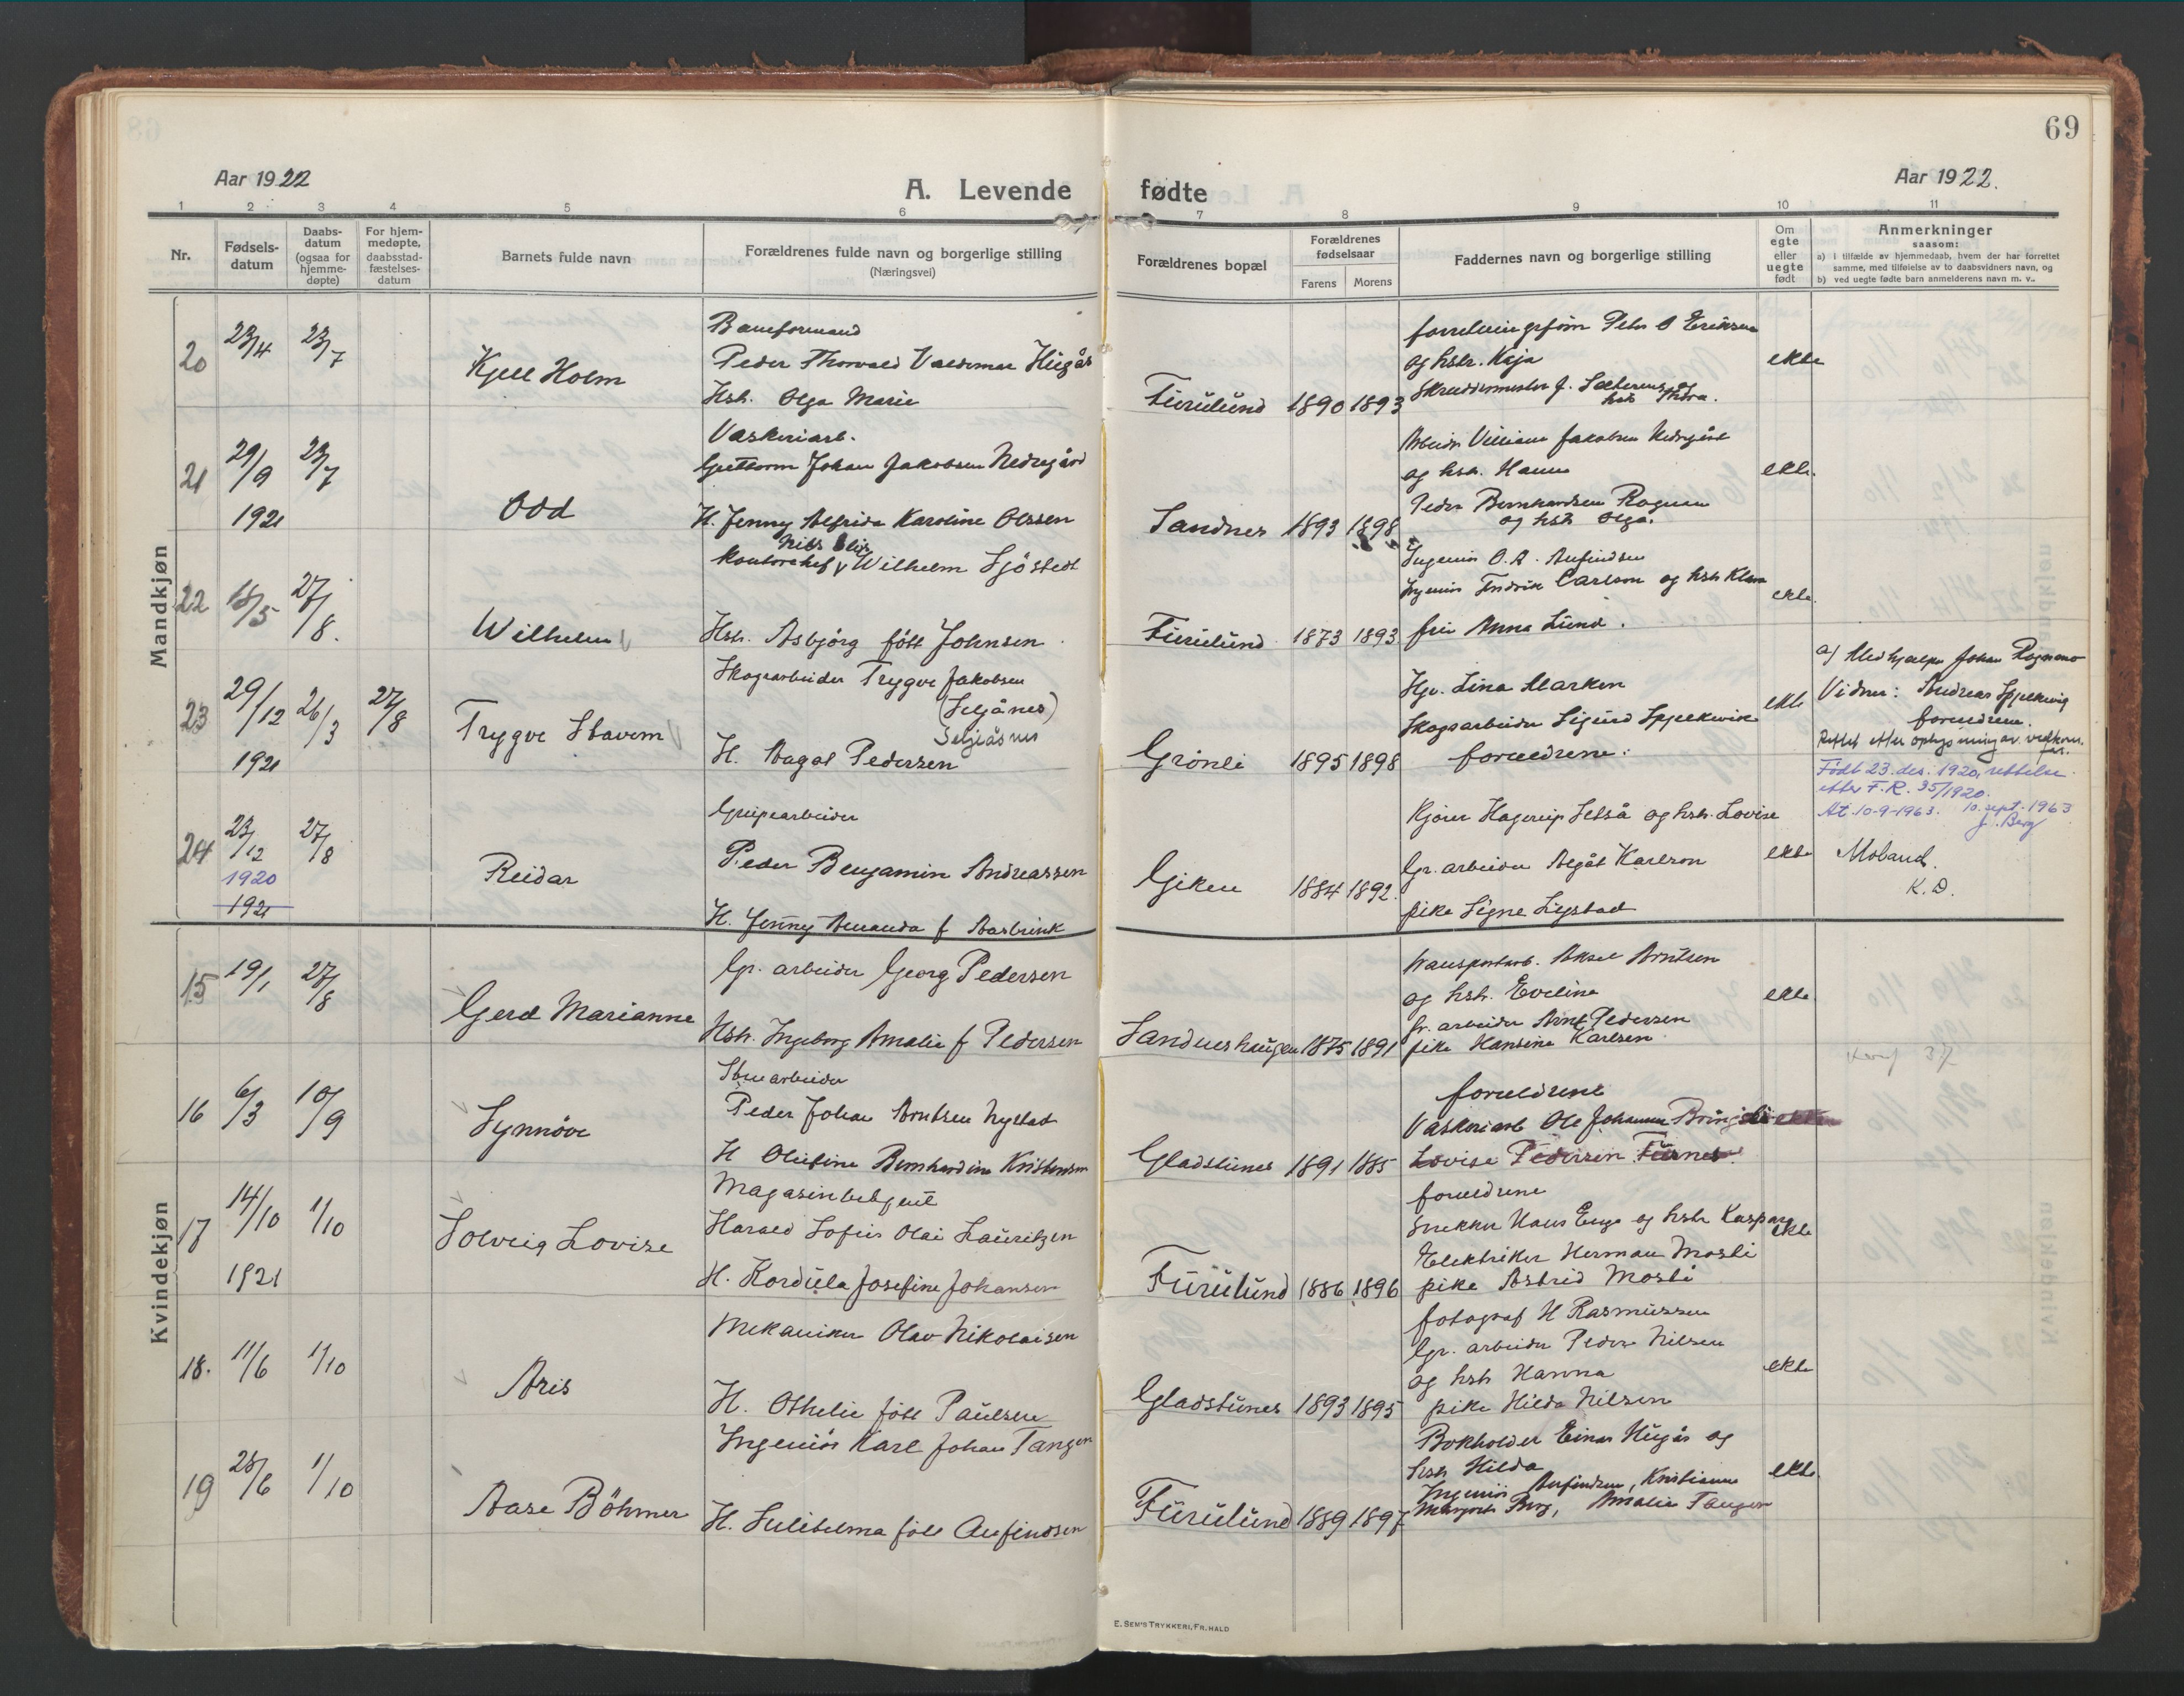 69
Aar 1922
A. Levende
fødte
Aar 1922.
1 2 3 4 5 6 7 8 9 10 11
Nr.
Fødsels-datum
Daabs-datum (ogsaa for hjemme-døpte)
For hjem-medøpte, daabsstad-fæstelses-datum
Barnets fulde navn
Forældrenes fulde navn og borgerlige stilling
(Næringsvei)
Forældrenes bopæl
Forældrenes fødselsaar
Farens
Morens
Faddernes navn og borgerlige stilling
Om egte eller uegte født
Anmerkninger
saasom:
a) i tilfælde av hjemmedaab, hvem der har forrettet
samme, med tilføielse av to daabsvidners navn, og
b) ved uegte fødte barn anmelderens navn m. v..
Mandkjøn
20 23/4 23/7 Kjell Holm
Baneformand
Peder Thorvald Valdemar Hugås
Hstr. Olga Marie
Furulund 1890 1893
Peter O Eriksen
og hstr. Kaja
Skreddermester J.
ekte
21 29/9 1921 23/7 Odd
Vaskeriarb.
Guttorm Johan Jakobsen Nedregård
H. Jenny Alfrida Karoline Olssen
Sandnes 1893 1898
Arbeider Villiam Jakobsen Nedregård
og hstr. Hanna
Peder Bernhardsen Rognan
og hstr Olga.
ekte.
22 18/5 27/8. Wilhelm
Nils Elis
Kontorchef Wilhelm Sjöstedt
Hstr. Asbjörg fött Johnsen
Furulund 1873 1893
Ingeniör O. A. Anfindsen
Ingeniör Fredrik Carlson og hstr Klara
fru Anna Lund.
ekte.
23 29/12 1921 26/3 27/8 Trygve Stavem
Skogsarbeider Trygve Jakobsen
(Seljånes)
Seljeåsnes
H. Dagat Pedersen
Grönli 1895 1898
Hgr. Lina Marken
Skogsarbeider Sigurd Spjelkevik
foreldrene.
ekte
a) Medhjælper Johan Rognmo
Vidner: Andreas Spjelkevig
foreldrene.
Rettet efter oplysning av vedkom.
Födt 23. des. 1920, rettelse
etter F.R. 35/1920.
At. 10-9-1963. 10. sept. 1963
J. Berg
24 23/12 1920 1921 27/8 Reidar
Grubearbeider
Peder Benjamin Andreassen
H. Jenny Amanda f Aasbrink
Giken 1884 1892.
Kjörer Hagerup Setså og hstr. Lovise
Gr. arbeider Algåt Karlson
pike Signe Lystad
ekte
Moband.
K. D.
Kvindekjøn
15 19/1 27/8 Gerd Marianne
Gr. arbeider Georg Pedersen
Hstr. Ingeborg Amalie f Pedersen
Sandneshaugen 1875 1891
Transportarb. Aksel Arntsen
og hstr. Eveline
Gr. arbeider Arnt Pedersen
pike Hansine Karlsen
ekte
16 6/3 10/9 Synnöve
Stuearbeider
Peder Johan Arntsen Nystad
H Olufine Bernhardine Kristensen
Gladstunes 1891 1885
foreldrene
Vaskeriarb Ole Johannes Bringsli
Lovise Pedersen Furnes
17 14/10 1921 1/10 Solveig Lovise
Magasinbetjent
Harald Sofus Olai Lauritzen
H. Kordula Josefine Johansen
Furulund 1886 1896
foreldrene
Snekker Hans Enge og hstr Kaspara
Elektriker Herman Mosli
pike Astrid Mosli
ekte
18. 11/6 1/10 Aris
Mekaniker Olav Nikolaisen
H. Othelie fött Paulsen
Gladstunes 1893 1895
fotograf H Rasmussen
Gr. arbeider Peder Nilsen
og hstr Hanna
pike Hilda Nilsen
ekte
19 25/6 1/10 Aase Böhmer
Ingeniör Karl Johan Tangen
H. Sulitelma fött Anfindsen
Furulund 1889 1897
Bokholder Einar Hugås og
hstr Hilda
Ingeniör Anfindsen, Kristianne
Margrete Berg, Amalie Tangen
ekte.
E. SEM'S TRYKKERI, FR.HALD